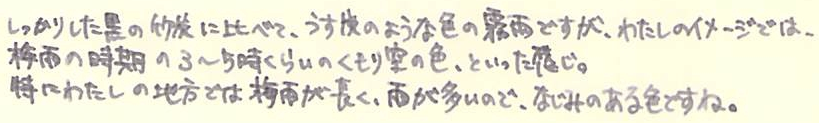 しっかりした黒の竹炭に比べて、うす炭のような色の霧雨ですが、わたしのイメージでは、
梅雨の時期の3〜5時くらいのくもり空の色、といった感じ。
特にわたしの地方では梅雨が長く、雨が多いので、なじみのある色ですね。